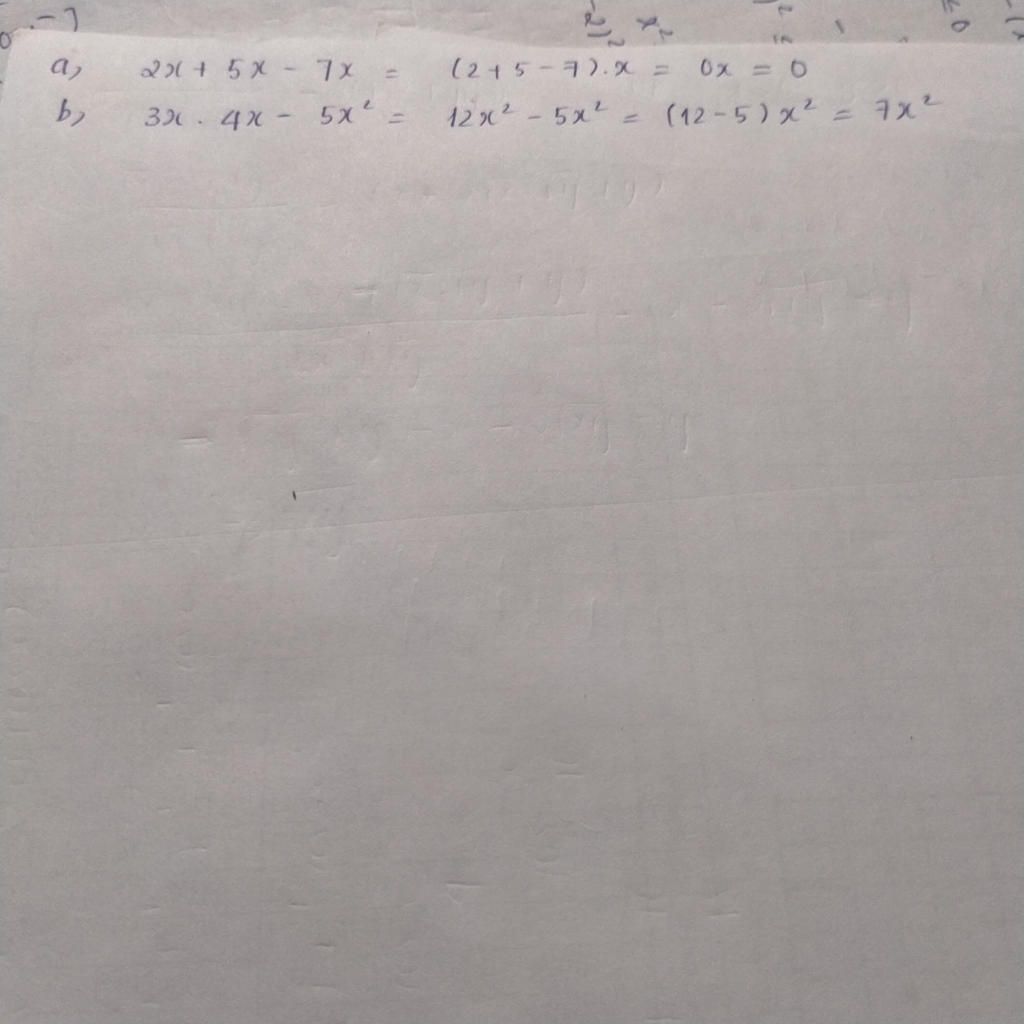 a) 2x + 5x - 7x = (2 + 5 - 7).x = 0x = 0
b) 3x . 4x - 5x² = 12x² - 5x² = (12 - 5)x² = 7x²